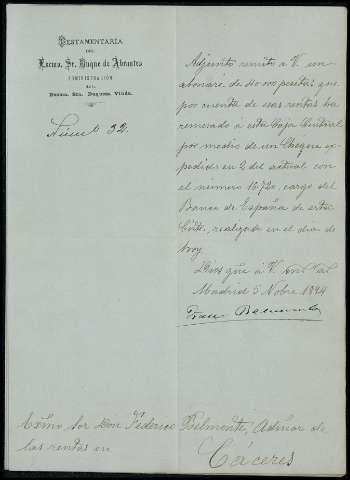 TESTAMENTARIA
DEL
Excmo. Sr. Duque de Abrantes
ADMINISTRACION
DE LA
Excma. Sra. Duquesa Viuda.
Núm. 32
Adjunto remito á V. un
abonaré de 40.000 pesetas que
por cuenta de esas rentas ha
remesado á esta Caja Central
por medio de un Cheque ex-
pedido en 2 del actual con
el número 1672 cargo del
Banco de España de esta
Corte, realizado en el dia de
hoy.
Dios gue á V.
Madrid 5 Nobre 1894
Belmonte
Exmo Sor Don Federico Belmonte, Admor de
las rentas en
Cáceres